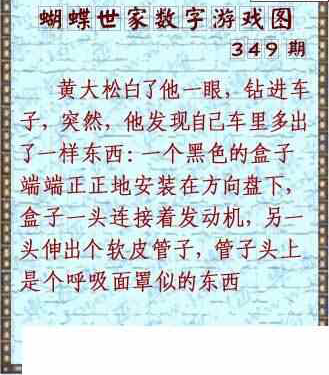 蝴蝶世家数字游戏图
349期
黄大松白了他一眼，钻进车
子，突然，他发现自己车里多出
了一样东西：一个黑色的盒子
端端正正地安装在方向盘下，
盒子一头连接着发动机，另一
头伸出个软皮管子，管子头上
是个呼吸面罩似的东西